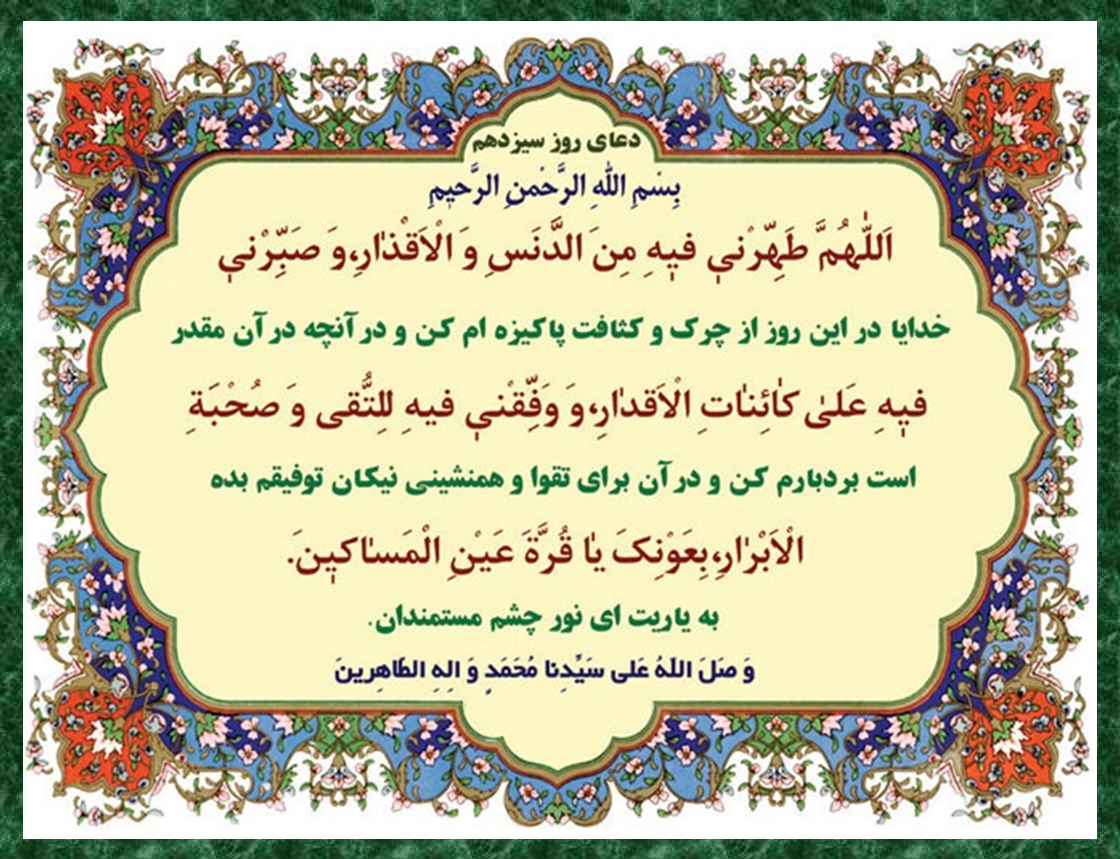 دعای روز سیزدهم
بِسْمِ اللّهِ الرَّحْمنِ الرَّحیمِ
اَللّٰهُمَّ طَهِّرْنی فیهِ مِنَ الدَّنَسِ وَ الْاَقْذٰارِ،وَ صَبِّرْنی
خدایا در این روز از چرک و کثافت پاکیزه ام کن و در آنچه در آن مقدر
فیهِ عَلیٰ کٰائِنٰاتِ الْاَقدٰارِ،و وَفِّقْنی فیهِ لِلتُّقی وَ صُحْبَةِ
است بردبارم کن و در آن برای تقوا و همنشینی نیکان توفیقم بده
الْاَبْرٰارِ،بِعَوْنِکَ یٰا قُرَّةَ عَیْنِ الْمَسٰاکینَ.
به یاریت ای نور چشم مستمندان.
وَ صَلَ اللّهُ عَلی سَیِّدِنا مُحَمَدٍ وَ الِهِ الطّاهِرینَ